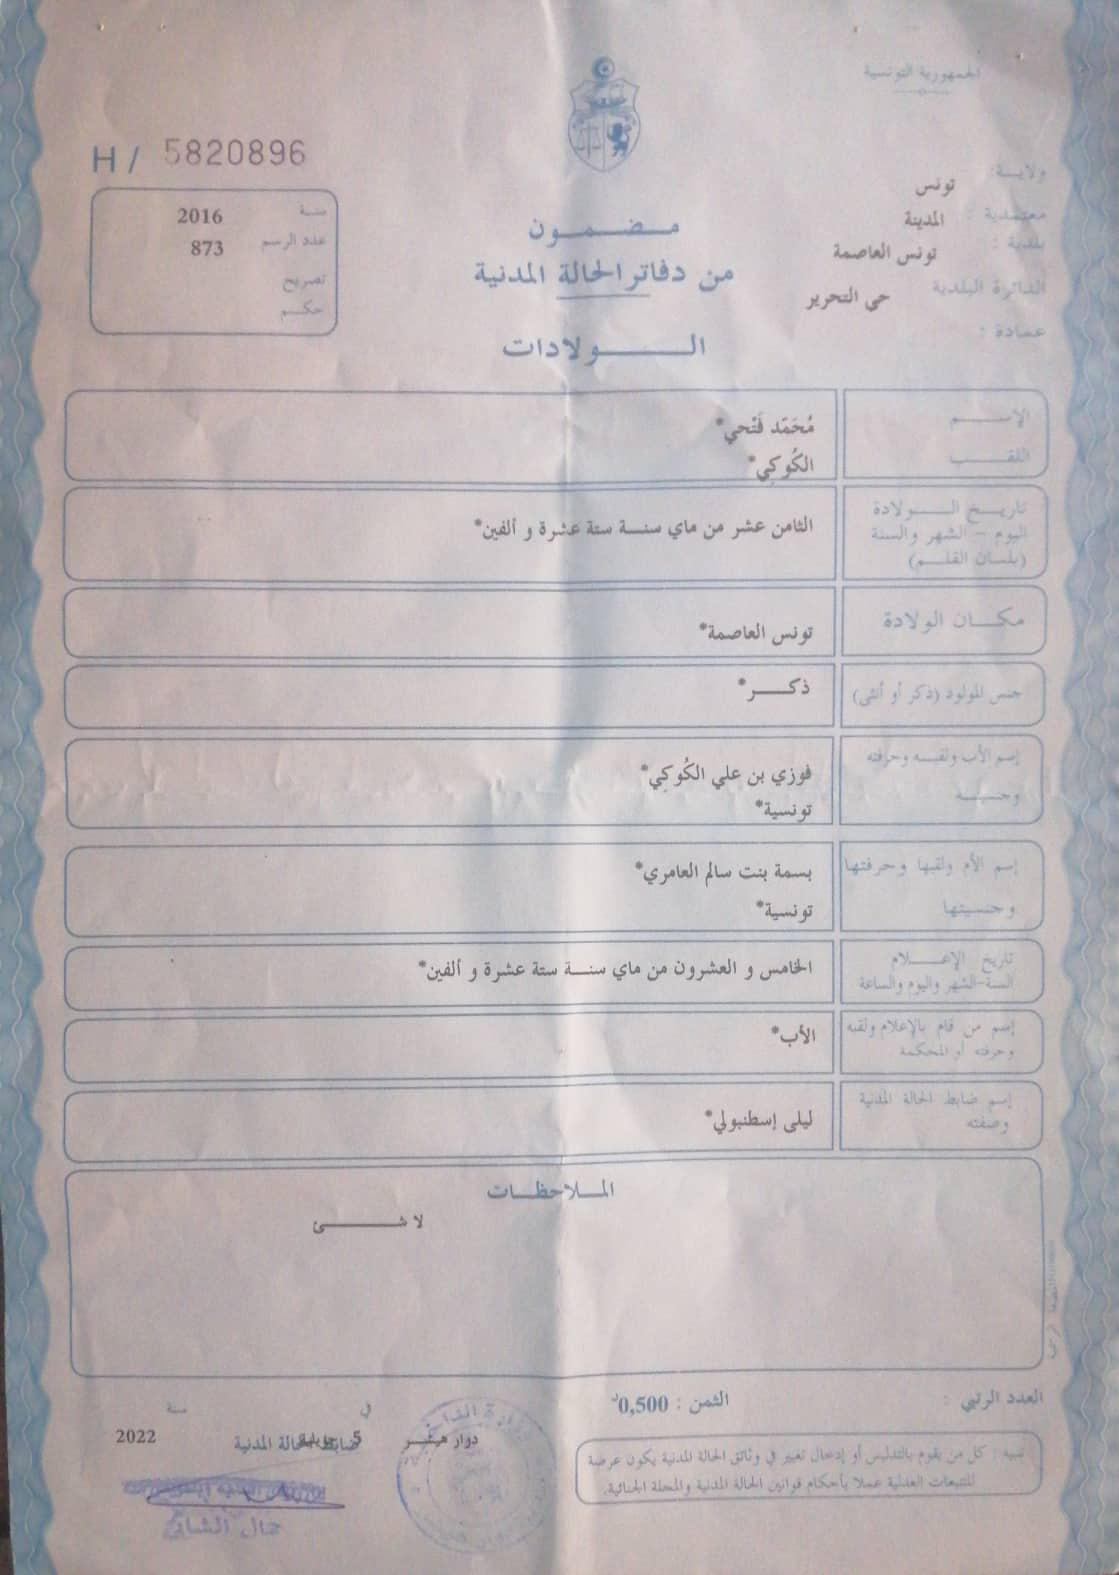 الجمهورية التونسية
H / 5820896
ولايـــة: تونس
معتمدية : المدينة
بلدية : تونس العاصمة
الدائرة البلدية حي التحرير
عمادة :
سنـة 2016
عدد الرسم 873
تصريح
حكـم
مـضـمـون
من دفاتر الحالة المدنية
الـــولادات
الإســـم مُحَمّد فَتْحي*
اللقـــب الكُوكِي*
تاريـخ الـــولادة
اليوم – الشهر والسنة
(بلسان القلـم)
الثامن عشر من ماي سنـة ستة عشرة و ألفين*
مكـــان الولادة تونس العاصمة*
جنس المولود (ذكر أو أنثى) ذكـــر*
إسم الأب ولقبـه وحرفته فوزي بن علي الكُوكِي*
وجنسيتـه تونسية*
إسم الأم ولقبها وحرفتها بسمة بنت سالم العامري*
وجنسيتها تونسية*
تاريخ الإعـــلام
السنة-الشهر واليوم والساعة
الخامس و العشرون من ماي سنـة ستة عشرة و ألفين*
إسم من قام بالإعلام ولقبه
وحرفته أو المحكمة
الأب*
إسم ضابط الحالة المدنية
وصفته
ليلى إسطنبولي*
المـلاحظـات
لا شـــــئ
العدد الرتبي :
الثمن : 0,500د
تنبيه : كل من يقوم بالتدليس أو إدخال تغيير في وثائق الحالة المدنية يكون عرضة
للتتبعات العدلية عملا بأحكام قوانين الحالة المدنية والمجلة الجنائية.
دوار هيشر في 5 جويلية سنة 2022
ضابط الحالة المدنية
جمال الشابي